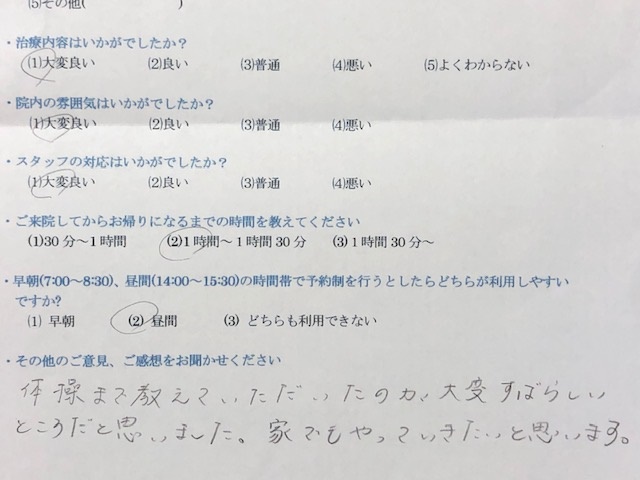 (5)その他(　　　　　)
・治療内容はいかがでしたか?
(1)大変良い　(2)良い　(3)普通　(4)悪い　(5)よくわからない
・院内の雰囲気はいかがでしたか?
(1)大変良い　(2)良い　(3)普通　(4)悪い
・スタッフの対応はいかがでしたか?
(1)大変良い　(2)良い　(3)普通　(4)悪い
・ご来院してからお帰りになるまでの時間を教えてください
(1)30分～1時間　(2)1時間～1時間30分　(3)1時間30分～
・早朝(7:00～8:30)、昼間(14:00～15:30)の時間帯で予約制を行うとしたらどちらが利用しやすい
ですか?
(1) 早朝　(2) 昼間　(3) どちらも利用できない
・その他のご意見、ご感想をお聞かせください
体操まで教えていただいたのが、大変すばらしい
ところだと思いました。家でもやっていきたいと思います。